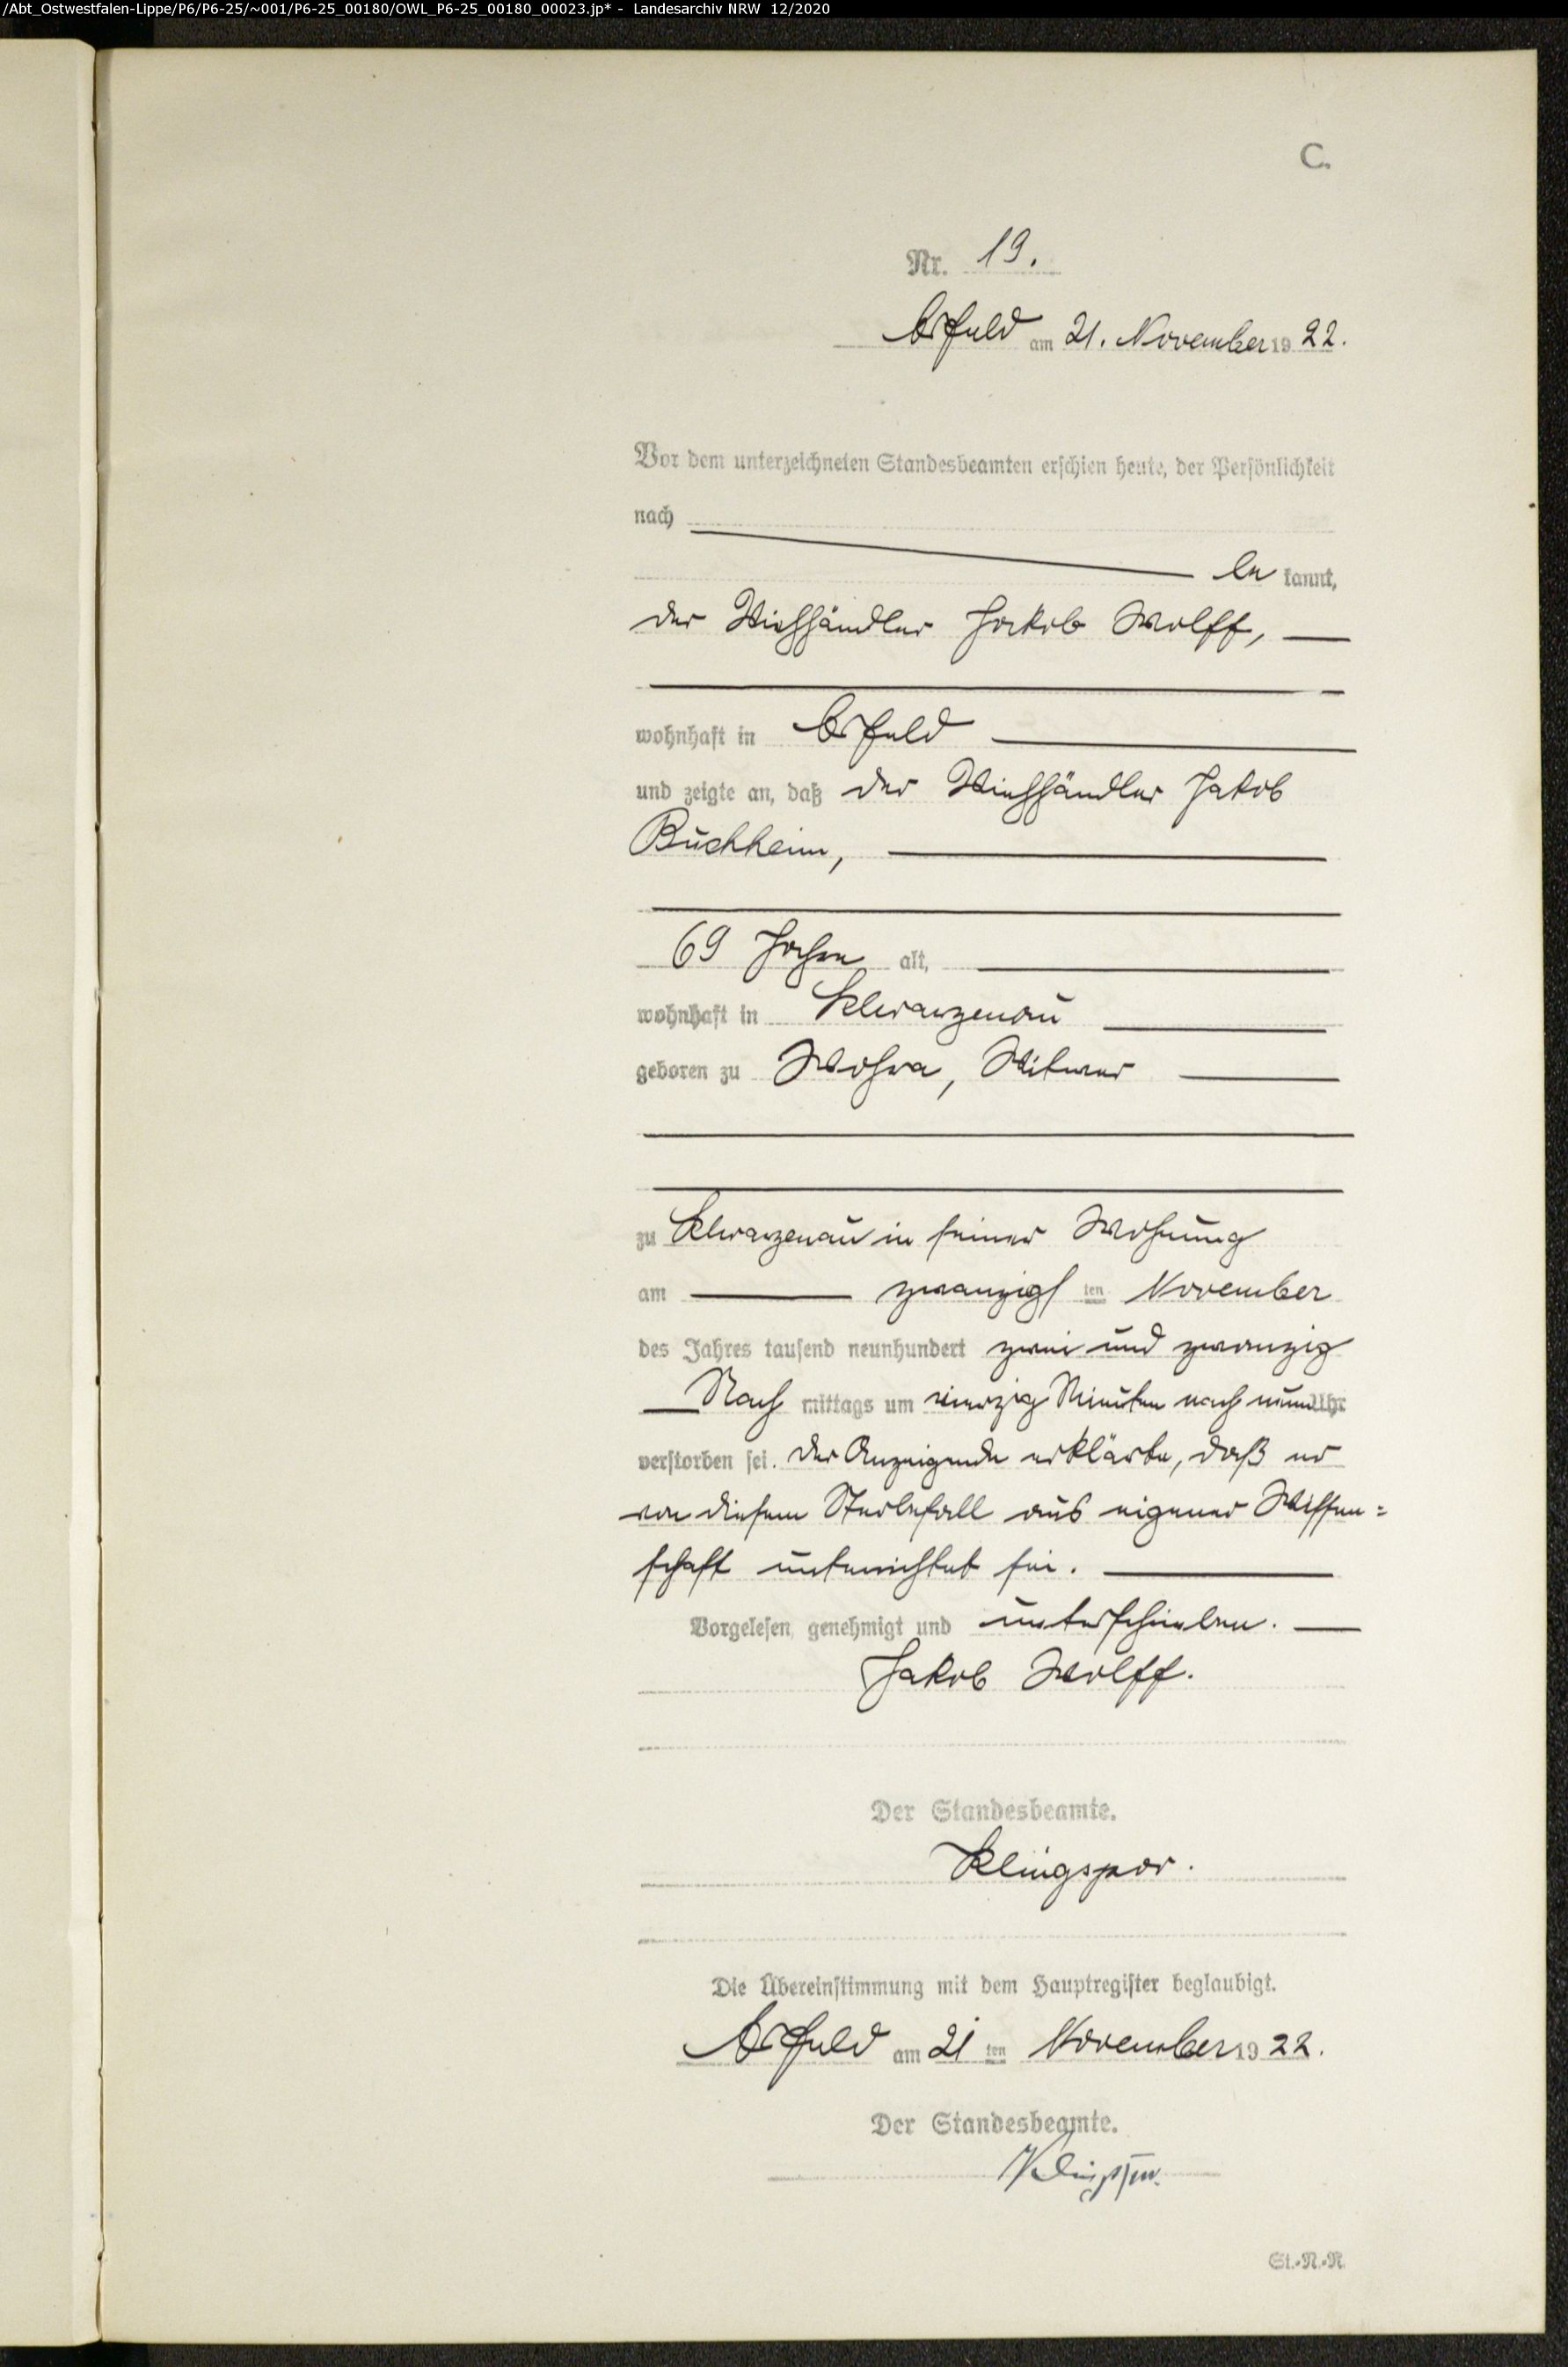 /Abt_Ostwestfalen-Lippe/P6/P6-25/~001/P6-25_00180/OWL_P6-25_00180_00023.jp* - Landesarchiv NRW 12/2020
C.
Nr. 19.
Arfeld am 21. November 1922.
Vor dem unterzeichneten Standesbeamten erschien heute, der Persönlichkeit
nach
be kannt,
der Viehhändler Jakob Wolff,
wohnhaft in Arfeld
und zeigte an, daß der Viehhändler Jakob
Buchheim,
69 Jahre alt,
wohnhaft in Schwarzenau
geboren zu Wohra, Witwer
zu Schwarzenau in seiner Wohnung
am zwanzigsten November
des Jahres tausend neunhundert zwei und zwanzig
Nach mittags um vierzig Minuten nach neun Uhr
verstorben sei. Der Anzeigende erklärte, daß er
von diesem Sterbefall aus eigener Wissen=
schaft unterrichtet sei.
Vorgelesen, genehmigt und unterschrieben.
Jakob Wolff.
Der Standesbeamte.
Klingspor.
Die Übereinstimmung mit dem Hauptregister beglaubigt.
Arfeld am 21ten November 1922.
Der Standesbeamte.
Klingspor.
St.-N.-R.